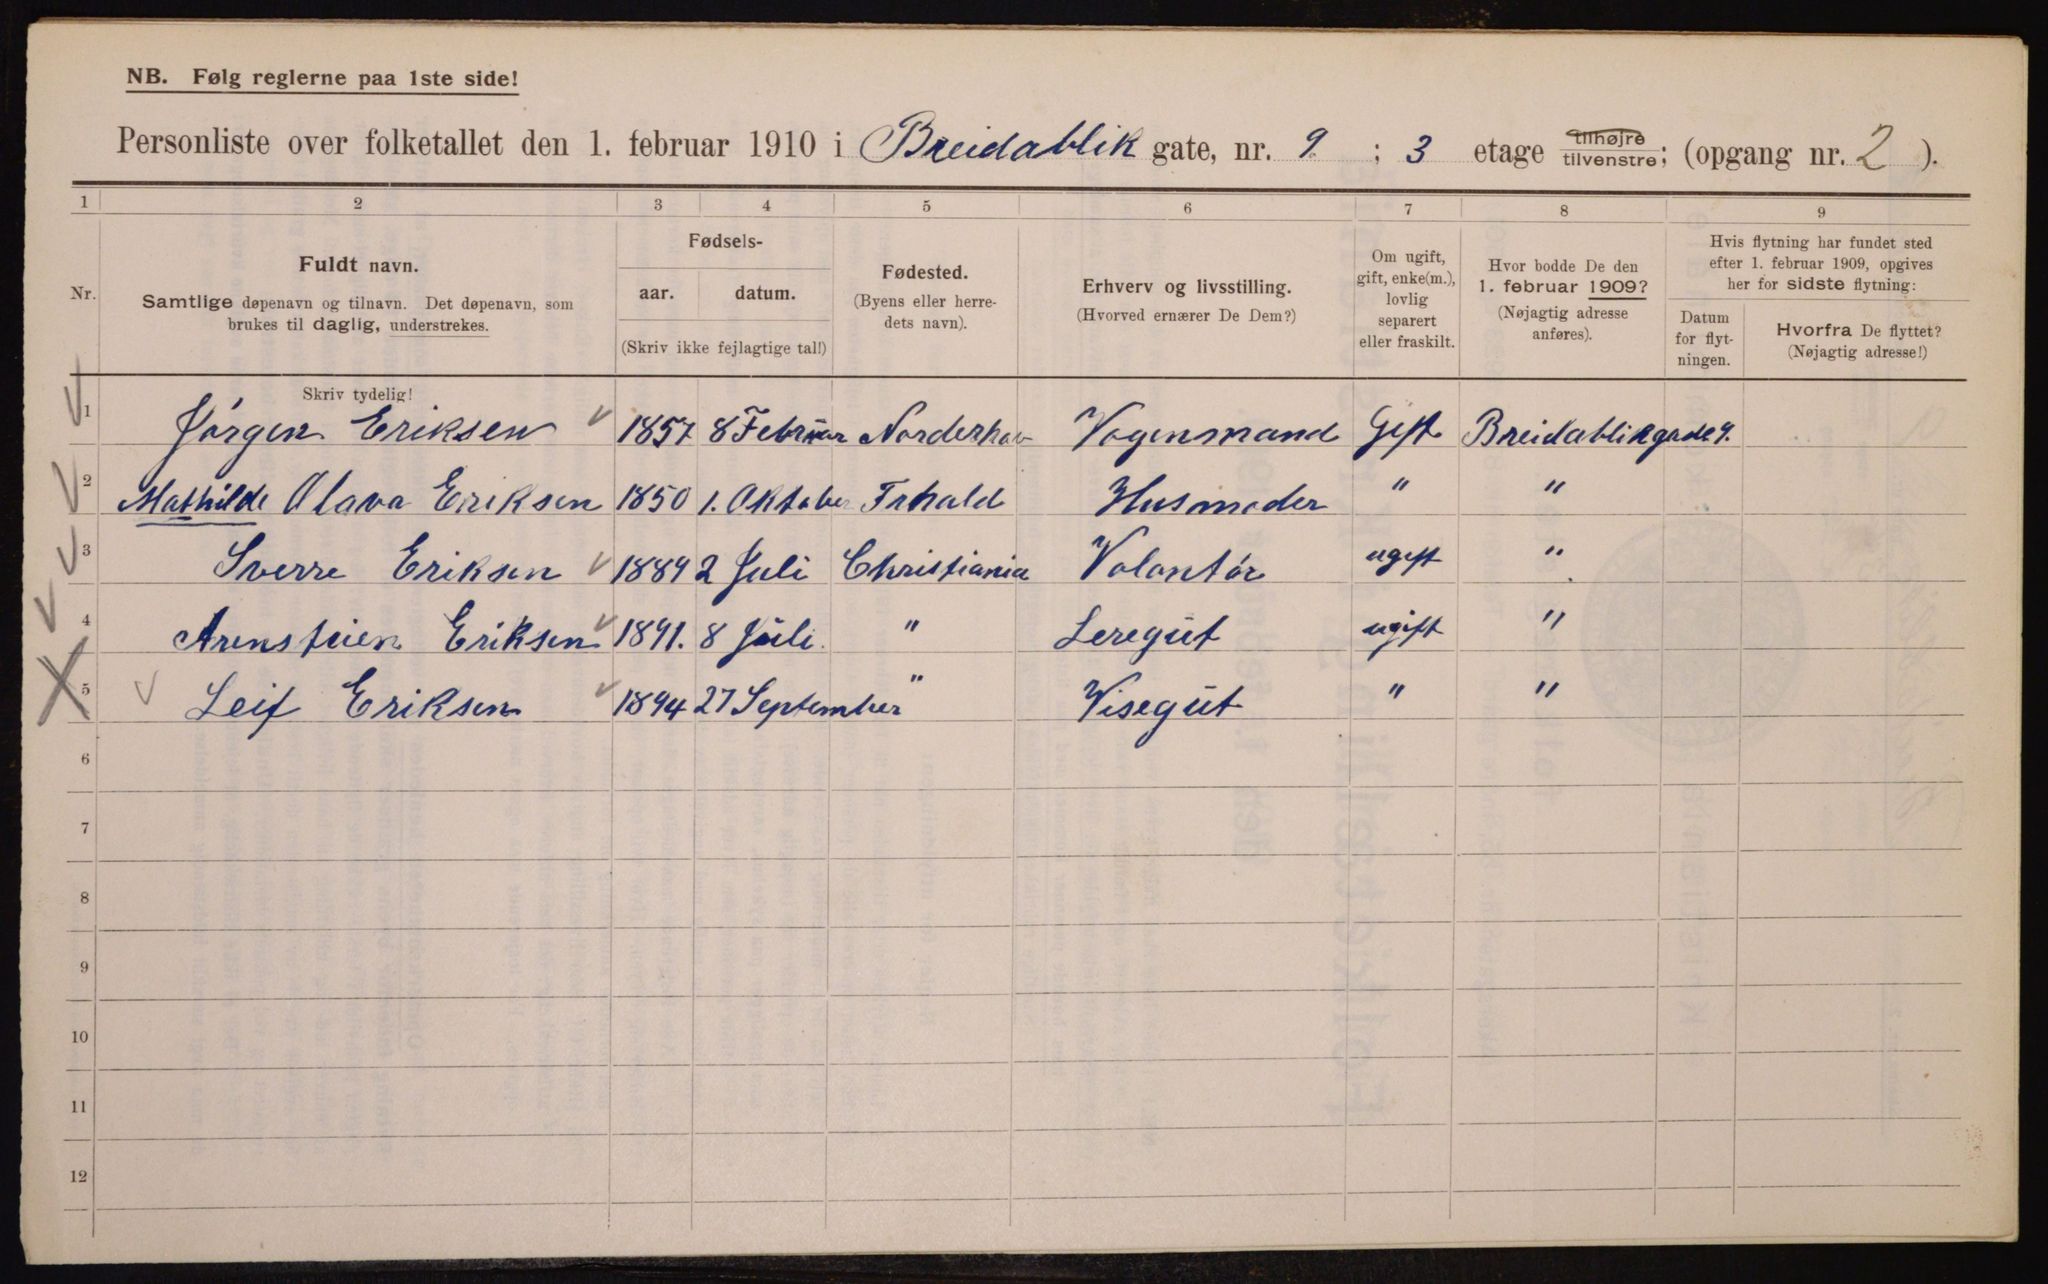 NB. Følg reglerne paa 1ste side!
Personliste over folketallet den 1. februar 1910 i Breidablik gate, nr. 9. ; 3 etage tilhøjre tilvenstre; (opgang nr. 2 ).
1 2 3 4 5 6 7 8 9
Nr.
Fuldt navn.
Samtlige døpenavn og tilnavn. Det døpenavn, som
brukes til daglig, understrekes.
Fødsels-
aar. datum.
(Skriv ikke fejlagtige tal!)
Fødested.
(Byens eller herre-
dets navn).
Erhverv og livsstilling.
(Hvorved ernærer De Dem?)
Om ugift,
gift, enke(m.),
lovlig
separert
eller fraskilt.
Hvor bodde De den
1. februar 1909?
(Nøjagtig adresse
anføres).
Hvis flytning har fundet sted
efter 1. februar 1909, opgives
her for sidste flytning:
Datum
for flyt-
ningen.
Hvorfra De flyttet?
(Nøjagtig adresse!)
Skriv tydelig!
1 Jørgen Eriksen 1857 8 Februar Norderhov Vognmand Gift Breidablikgade 9.
2 Mathilde Olava Eriksen 1850 1. Oktober Husmoder " "
3 Sverre Eriksen 1889 2 Juli Christiania Volontør ugift "
4 Arensteien Eriksen 1891. 8 Juli. " Leregut ugift "
5 Leif Eriksen 1894 27 September " Visegut " "
6
7
8
9
10
11
12